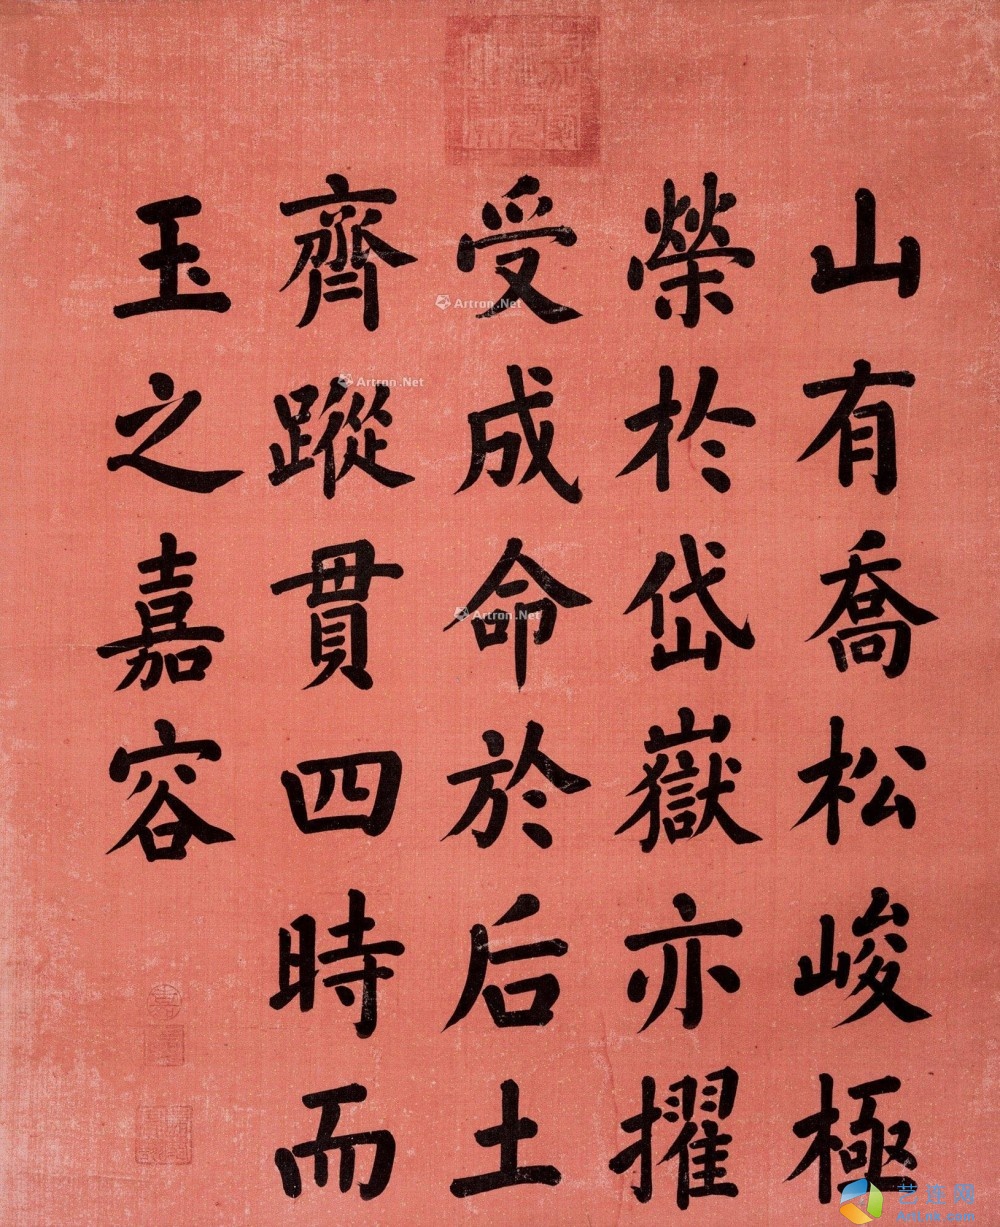 山有喬松峻極
榮於岱嶽亦擢
受成命於后土
齊蹤貫四時而
玉之嘉容
Artron.Net
Artron.Net
Artron.Net
艺连网
Artxw.com